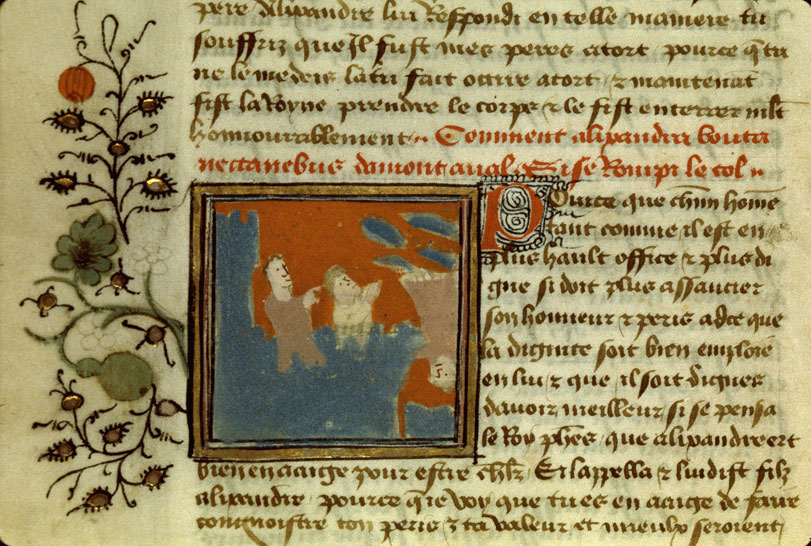 pere Alixandre lui Respondi en telle maniere tu
souffriz que Il fust mes peres atort pource q̃ tu
ne le medeis la tu fait occire atort ⁊ maintenāt
fist la Royne prendre le corps ⁊ le fist enterrer mlt
honnourablement Comment alixandre bouta
nectanebus damont aual ⁊ se Rompi le col
Pource que chūn homē
tant comme il est en
plus hault office ⁊ plus di
gne si doit plus assaucier
son honneur ⁊ peris adce que
la dignite soit bien emploiee
en lui ⁊ que il soit dignes
dauoir meilleur si se pensa
le Roy phēs que alixandre ert
bien en aaige pour estre chlr̄ Et lappella ⁊ lui dist filz
alixandre pource q̃ ie voy que tu es en aaige de faire
congnoistre ton peris ⁊ ta valeur et mieulx seroient